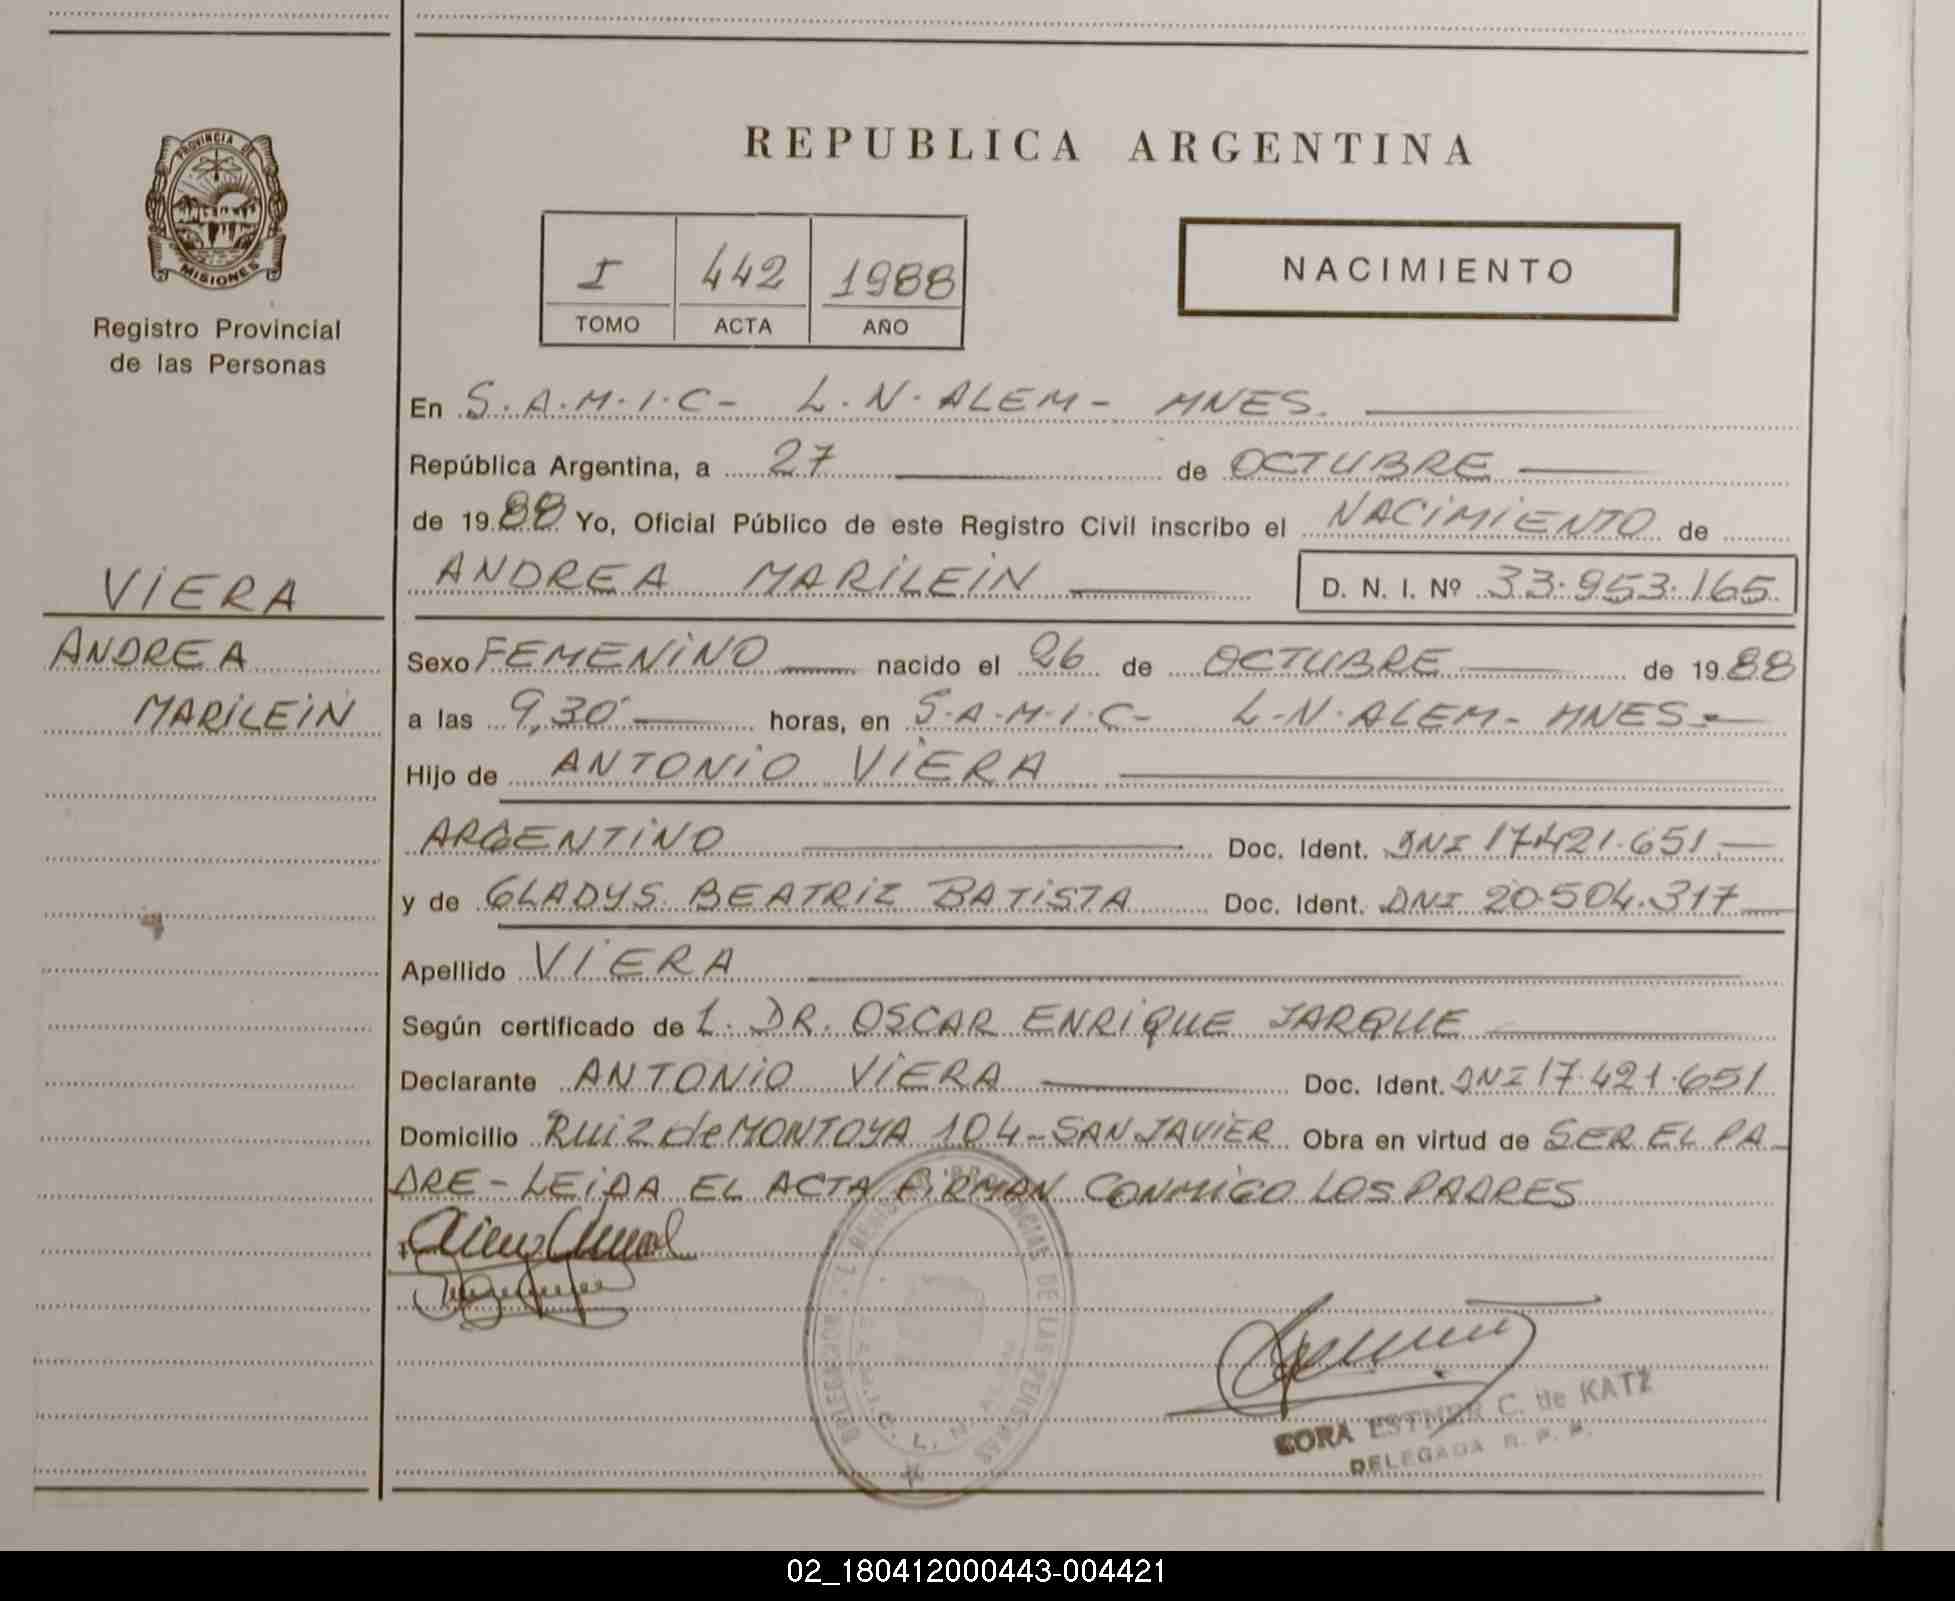 REPUBLICA ARGENTINA
PROVINCIA DE
MISIONES
Registro Provincial
de las Personas
I 442 1988
TOMO ACTA AÑO
NACIMIENTO
En S.A.M.I.C- L.N.ALEM- MNES.
República Argentina, a 27 de OCTUBRE
de 1988 Yo, Oficial Público de este Registro Civil inscribo el NACIMIENTO de
ANDREA MARILEIN D. N. I. Nº 33.953.165
VIERA
ANDREA
MARILEIN
Sexo FEMENINO nacido el 26 de OCTUBRE de 1988
a las 9,30 horas, en S.A.M.I.C- L.N.ALEM- MNES-
Hijo de ANTONIO VIERA
ARGENTINO Doc. Ident. DNI 17.421.651.
y de GLADYS BEATRIZ BATISTA Doc. Ident. DNI 20.504.317
Apellido VIERA
Según certificado de 1. DR. OSCAR ENRIQUE JARQUE
Declarante ANTONIO VIERA Doc. Ident. DNI 17.421.651
Domicilio RUIZ de MONTOYA 104-SAN JAVIER Obra en virtud de SER EL PA-
DRE- LEIDA EL ACTA FIRMAN CONMIGO LOS PADRES
PROVINCIAS DE LAS PERSONAS
CORA ESTHER C. de KATZ
DELEGADA R. P. P.
02_180412000443-004421